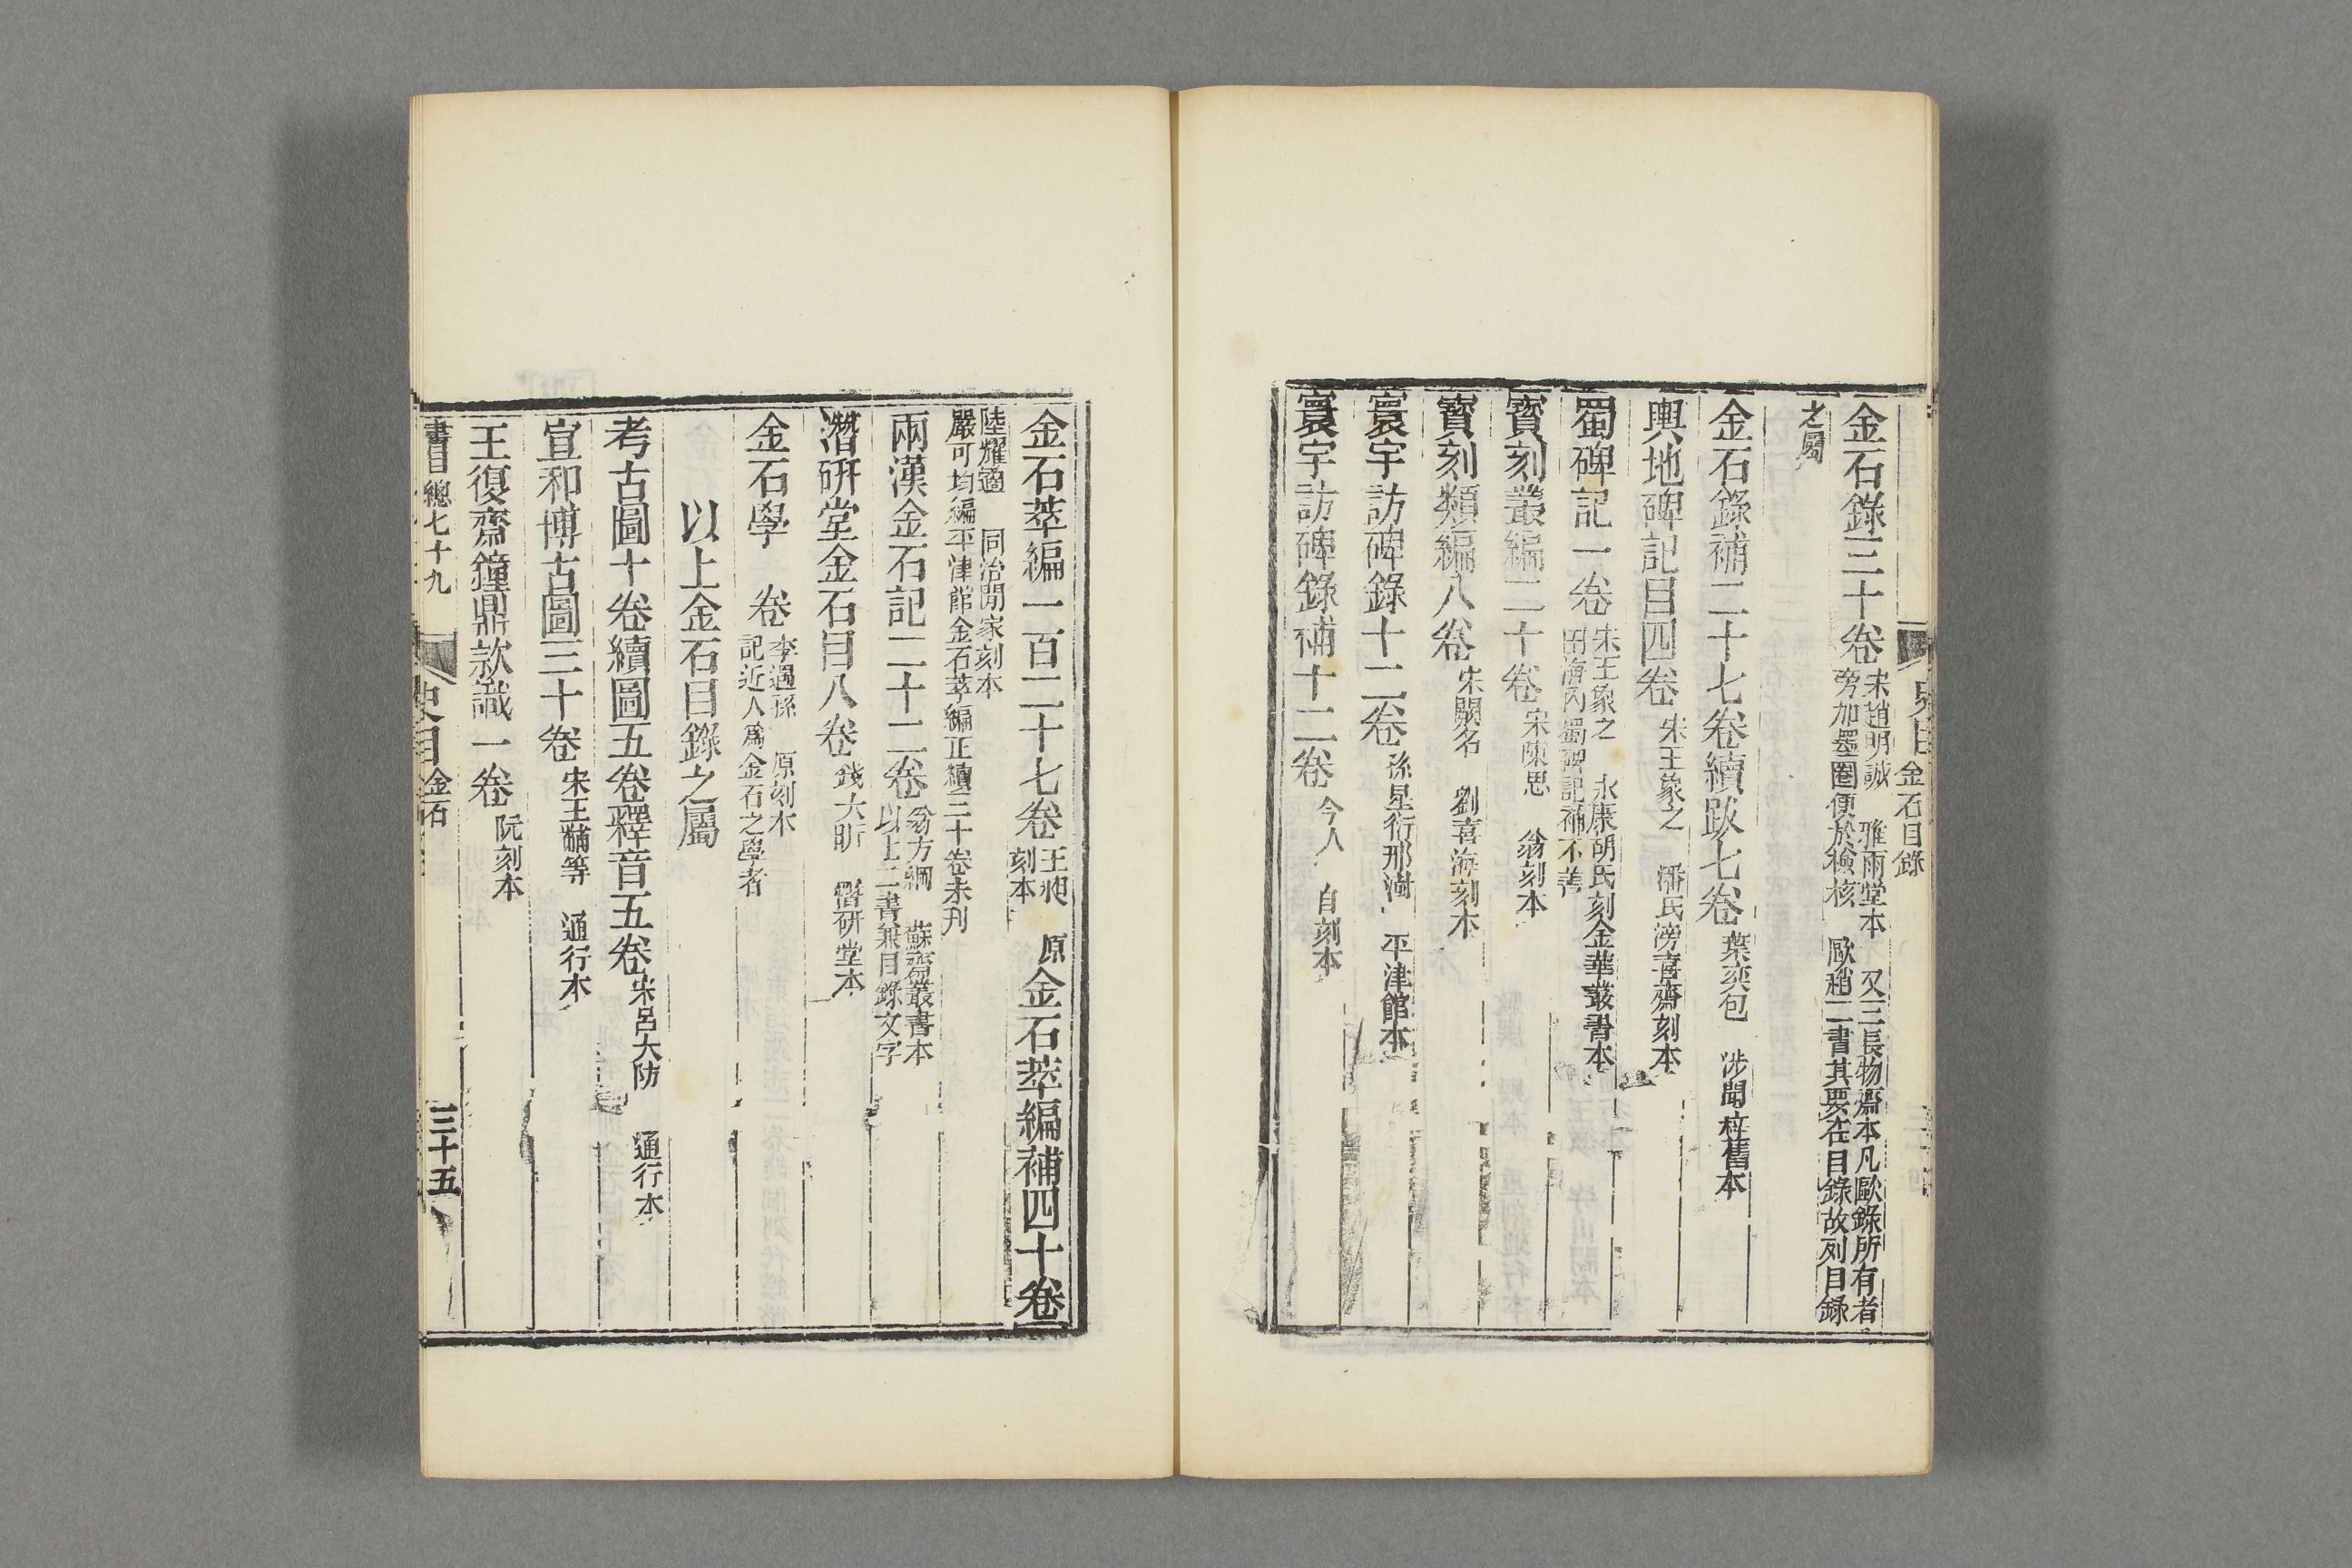 金石目錄
金石錄三十卷 宋趙明誠 雅雨堂本 又三長物齋本凡歐錄所有者
旁加墨圈便於檢核 歐趙二書其要在目錄故列目錄
之屬
金石錄補二十七卷續跋七卷 葉奕包 涉聞梓舊本
輿地碑記目四卷 宋王象之 潘氏滂喜齋刻本
蜀碑記一卷 宋王象之 永康胡氏刻金華叢書本
蜀碑記補不善
寶刻叢編二十卷 宋陳思 翁刻本
寶刻類編八卷 宋闕名 劉喜海刻本
寰宇訪碑錄十二卷 孫星衍邢澍 平津館本
寰宇訪碑錄補十二卷 今人 自刻本
金石萃編一百六十卷 王昶 原刻本 金石萃編補四十卷
陸耀遹 同治閒家刻本
嚴可均編平津館金石萃編正續三十卷未刊
兩漢金石記二十二卷 翁方綱 蘇齋叢書本
以上二書兼目錄文字
潛研堂金石目八卷 錢大昕 潛研堂本
金石學 卷 李遇孫 原刻本
記近人爲金石之學者
以上金石目錄之屬
考古圖十卷續圖五卷釋音五卷 宋呂大防 通行本
宣和博古圖三十卷 宋王黼等 通行本
王復齋鐘鼎款識一卷 阮刻本
書目 總七十九 史目 金石 三十五